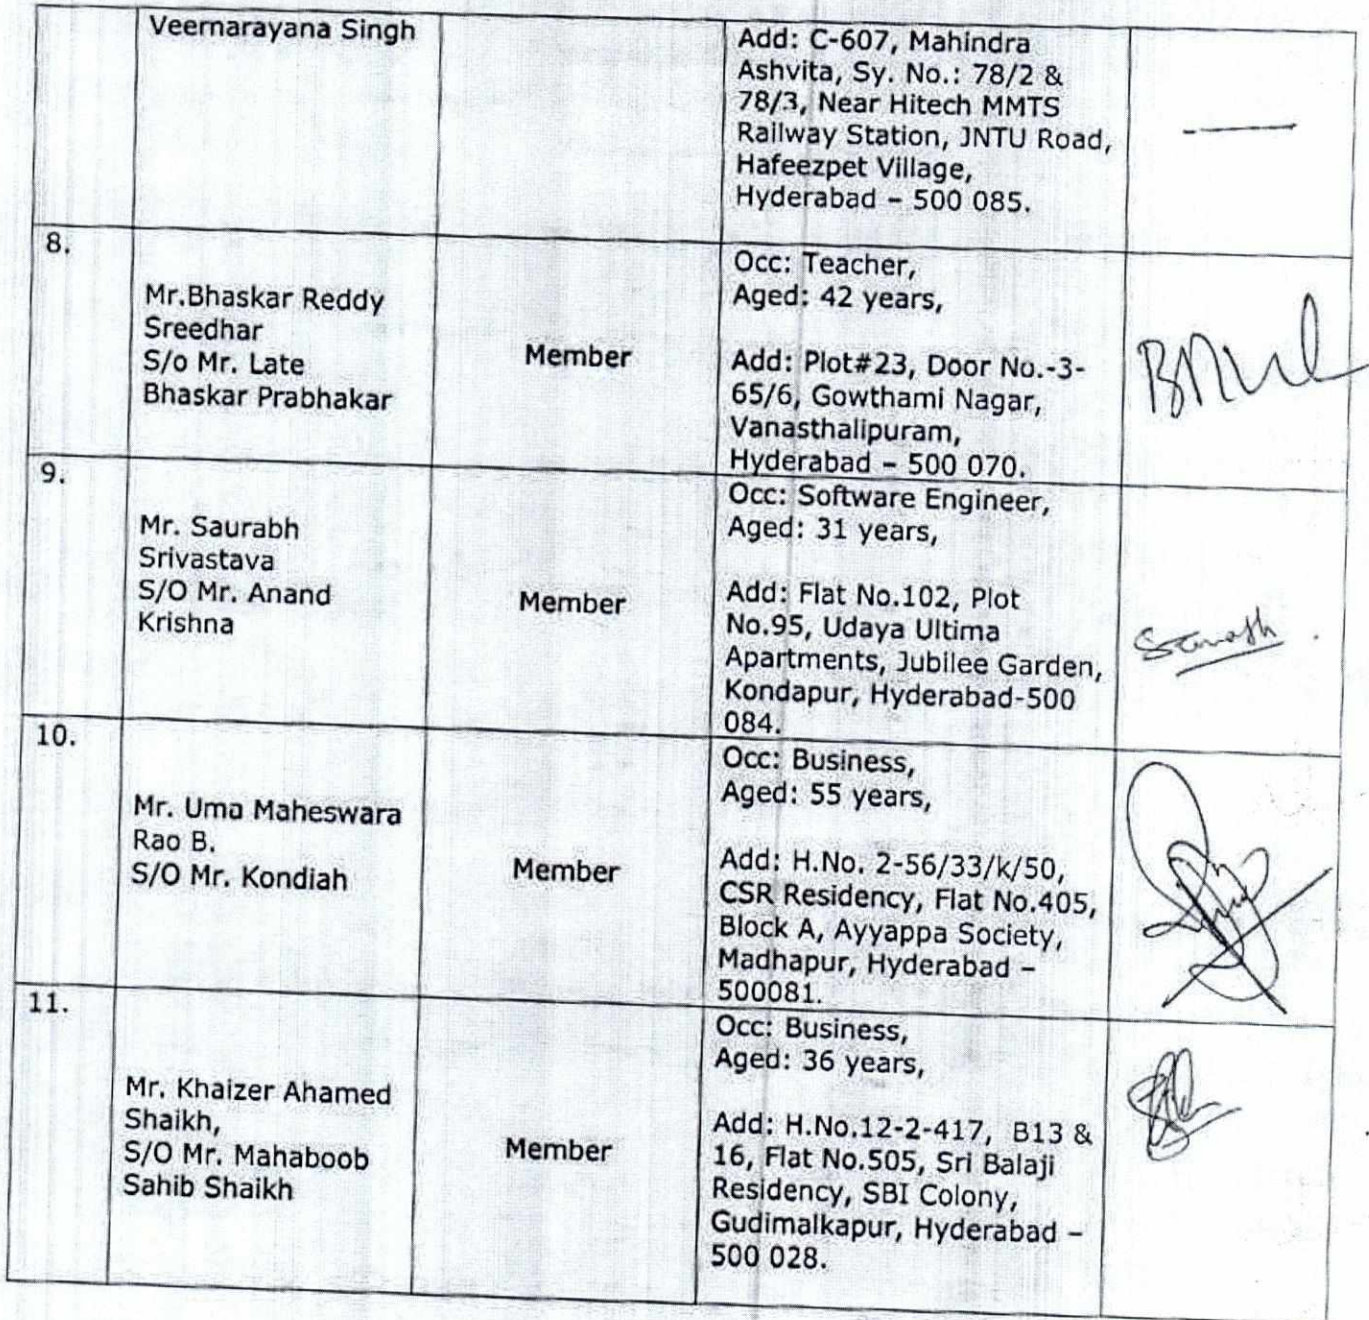 Veernarayana Singh
Add: C-607, Mahindra
Ashvita, Sy. No.: 78/2 &
78/3, Near Hitech MMTS
Railway Station, JNTU Road,
Hafeezpet Village,
Hyderabad – 500 085.
8.
Mr.Bhaskar Reddy
Sreedhar
S/o Mr. Late
Bhaskar Prabhakar
Member
Occ: Teacher,
Aged: 42 years,
Add: Plot#23, Door No.-3-
65/6, Gowthami Nagar,
Vanasthalipuram,
Hyderabad – 500 070.
9.
Mr. Saurabh
Srivastava
S/O Mr. Anand
Krishna
Member
Occ: Software Engineer,
Aged: 31 years,
Add: Flat No.102, Plot
No.95, Udaya Ultima
Apartments, Jubilee Garden,
Kondapur, Hyderabad-500
084.
10.
Mr. Uma Maheswara
Rao B.
S/O Mr. Kondiah
Member
Occ: Business,
Aged: 55 years,
Add: H.No. 2-56/33/k/50,
CSR Residency, Flat No.405,
Block A, Ayyappa Society,
Madhapur, Hyderabad –
500081.
11.
Mr. Khaizer Ahamed
Shaikh,
S/O Mr. Mahaboob
Sahib Shaikh
Member
Occ: Business,
Aged: 36 years,
Add: H.No.12-2-417, B13 &
16, Flat No.505, Sri Balaji
Residency, SBI Colony,
Gudimalkapur, Hyderabad –
500 028.